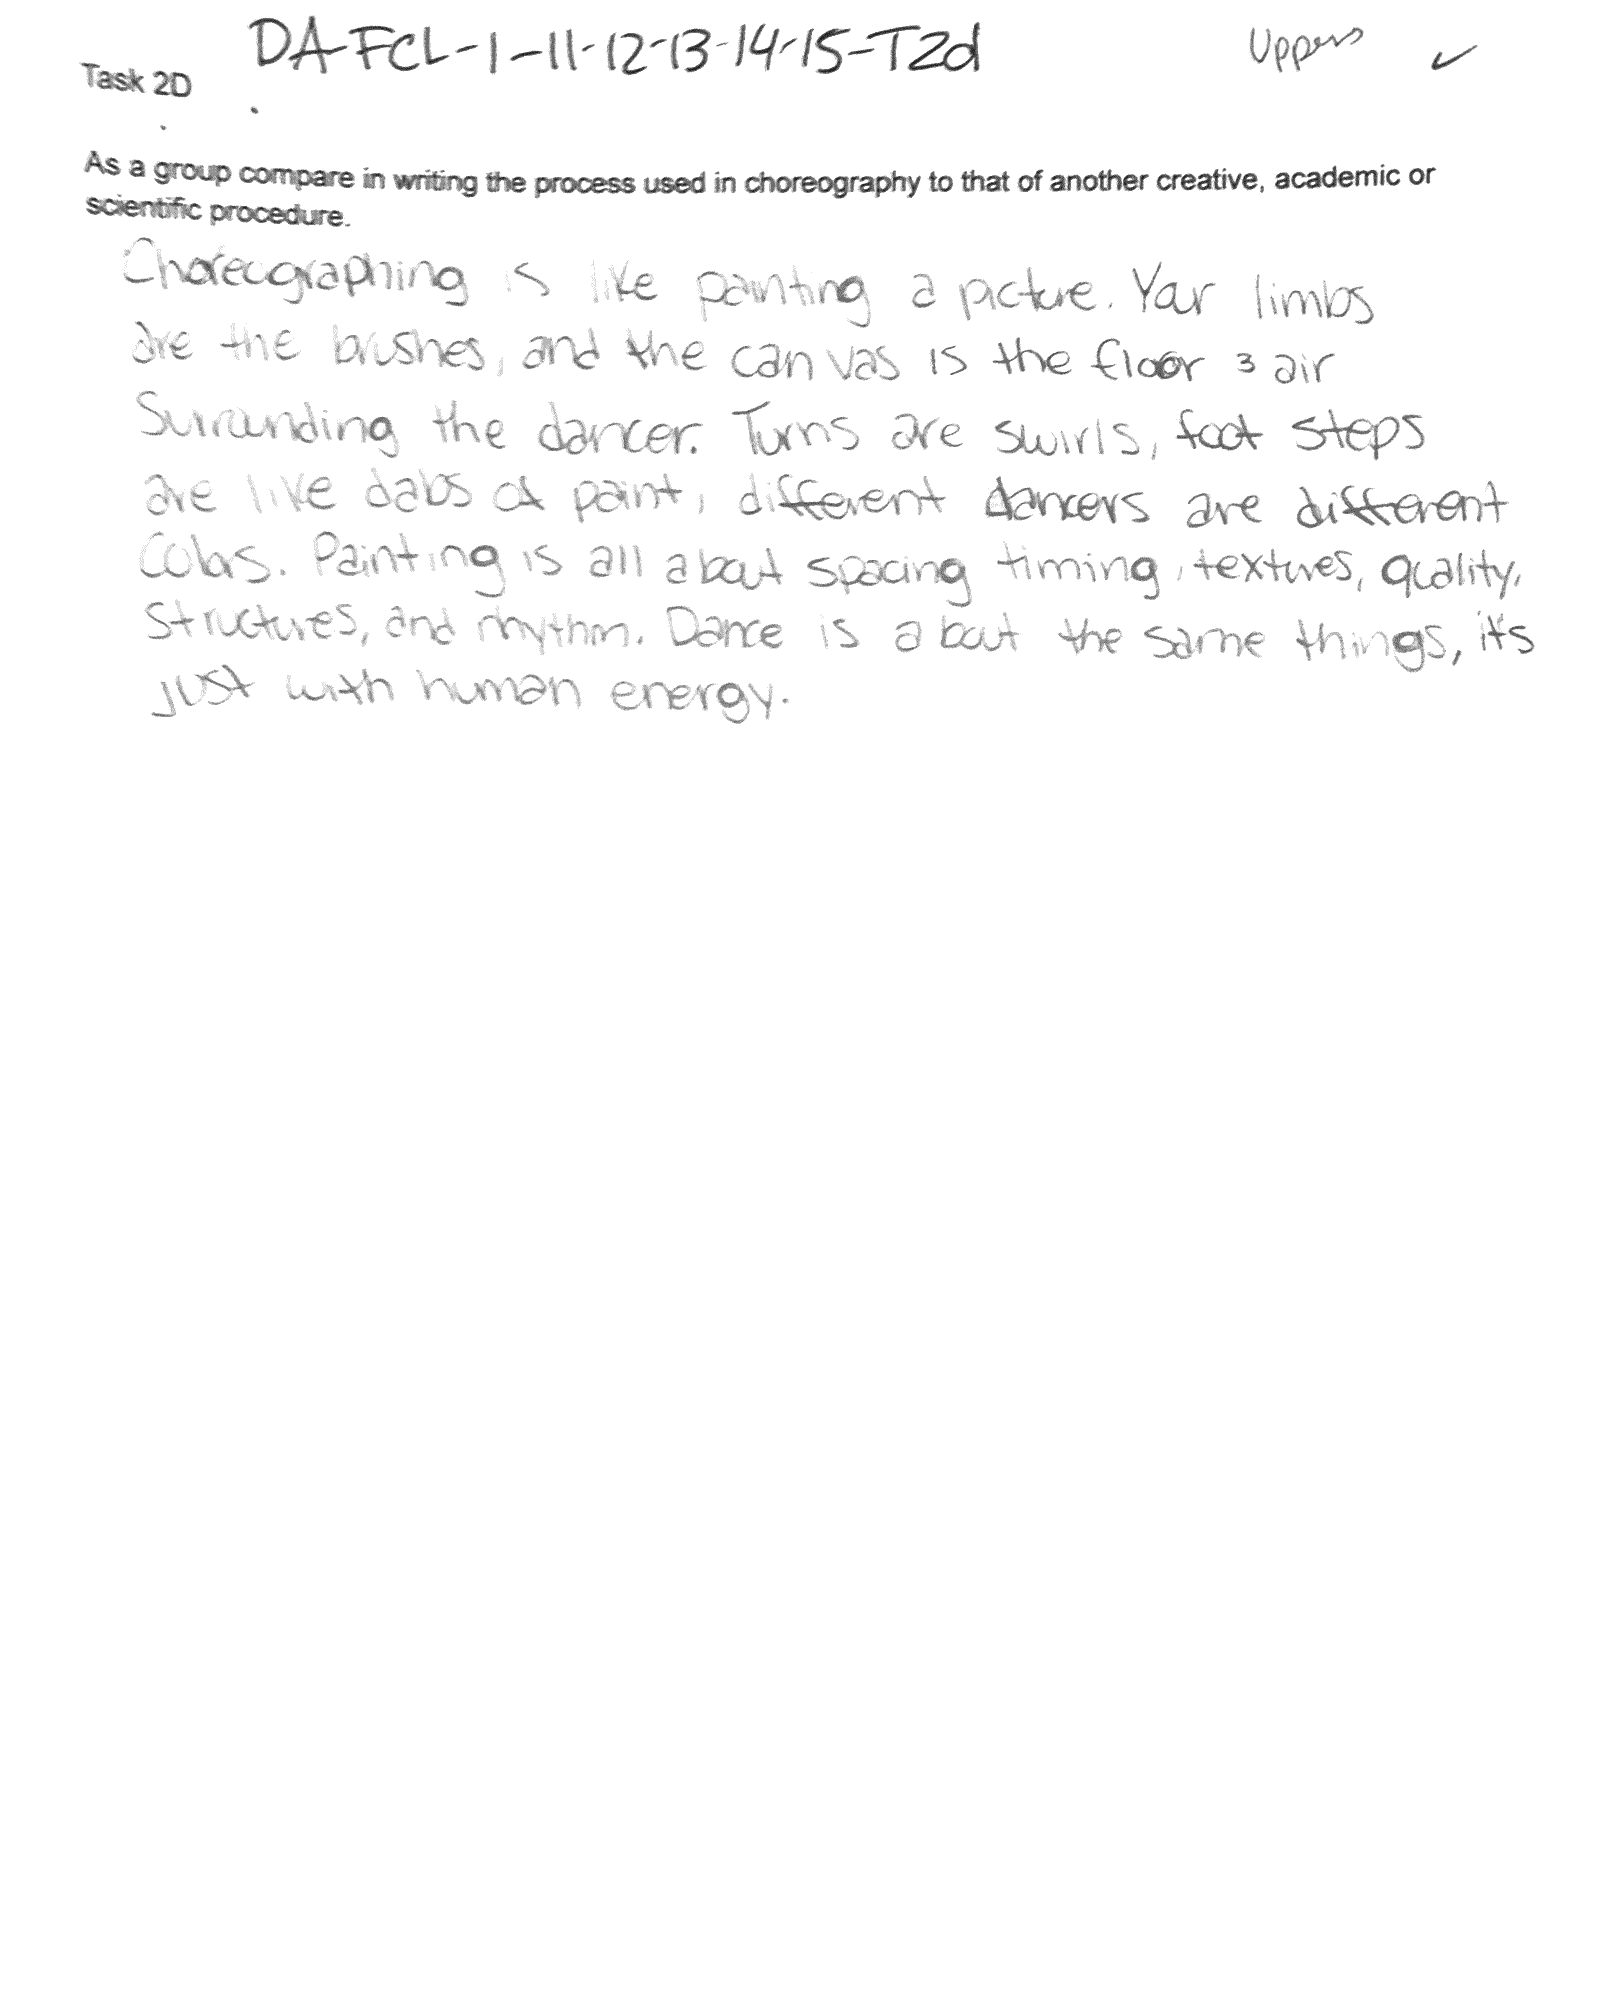 DA-FCL-1-11-12-13-14-15-T2d
Uppers ✓
Task 2D
As a group compare in writing the process used in choreography to that of another creative, academic or
scientific procedure.
Choreographing is like painting a picture. Your limbs
are the brushes, and the canvas is the floor & air
Surrounding the dancer. Turns are swirls, foot steps
are like dabs of paint, different dancers are different
Colors. Painting is all about spacing timing, textures, quality,
structures, and rhythm. Dance is about the same things, it's
just with human energy.